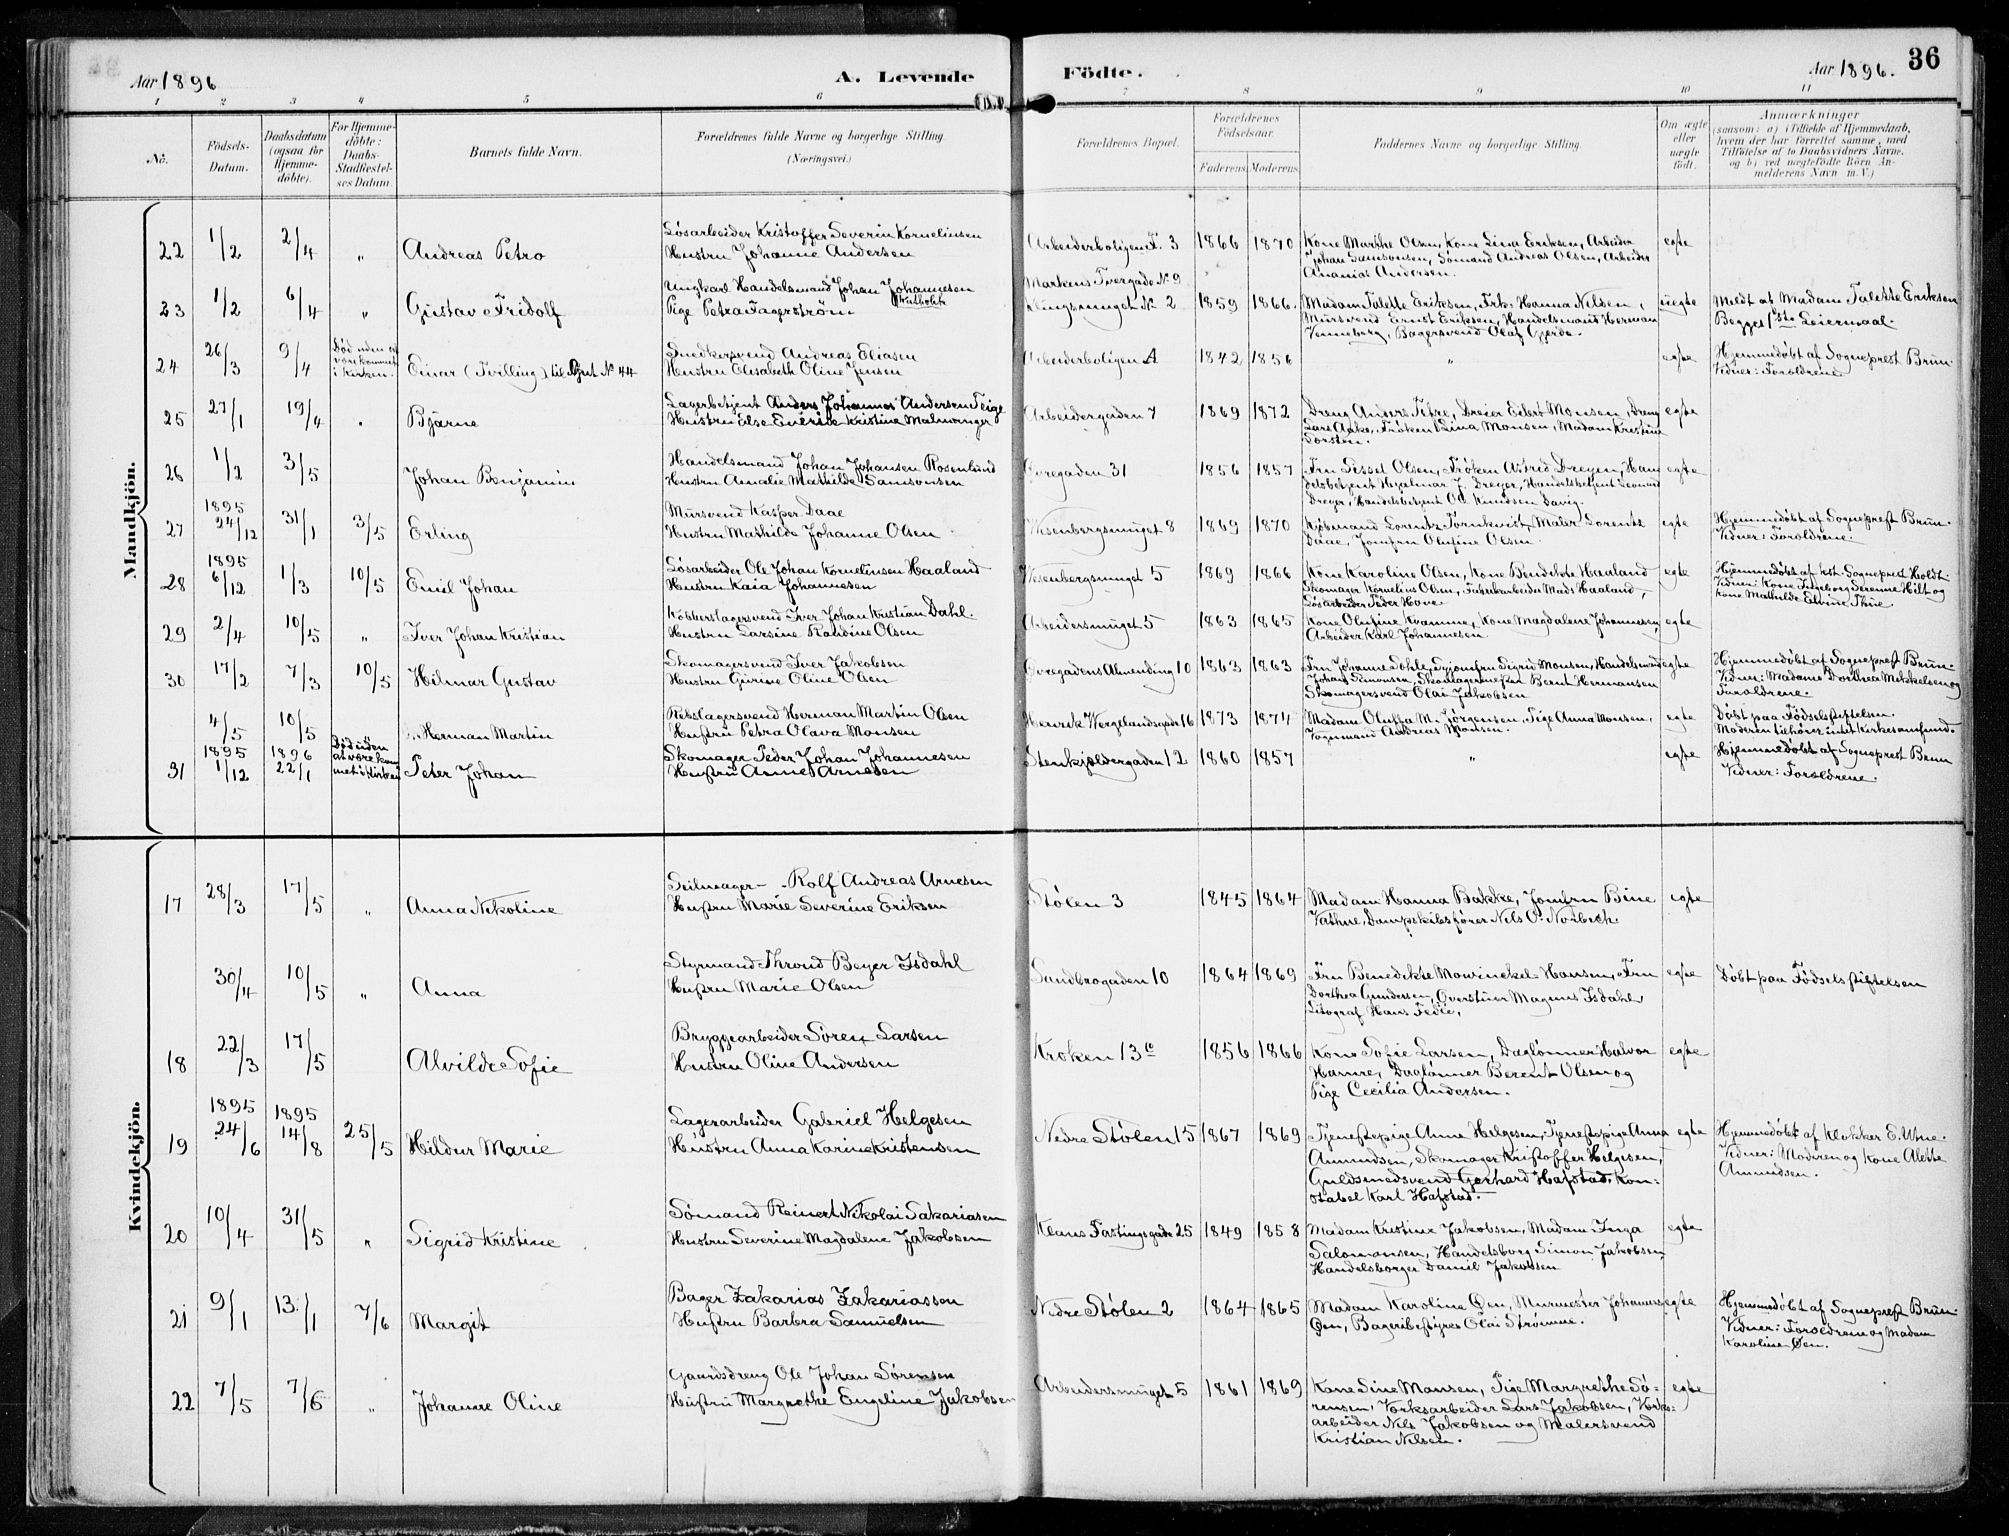 Aar 1896
A. Levende Födte.
Aar 1896. 36
1 2 3 4 5 6 7 8 9 10 11
No.
Födsels-
Datum.
Daabsdatum
(ogsaa for
Hjemme-
döbte).
For Hjemme-
döbte:
Daabs-
Stadfæstel-
ses Datum.
Barnets fulde Navn.
Forældrenes fulde Navne og borgerlige Stilling.
(Næringsvei.)
Forældrenes Bopæl.
Forældrenes
Födselsaar.
Faderens. Moderens.
Faddernes Navne og borgerlige Stilling.
Om ægte
eller
uægte
födt.
Anmærkninger
(saasom: a) i Tilfælde af Hjemmedaab,
hvem der har forrettet samme, med
Tilföielse af to Daabsvidners Navne,
og b) ved uægtefödte Börn An-
melderens Navn m. V.)
Mandkjön.
22 1/2 2/4 " Andreas Petro
Løsarbeider Kristoffer Severin Kornelinsen
Hustru Johanne Andersen
Arbeiderboligen F. 3 1866 1870
Kone Marthe Olsen, Kone Lina Eriksen, Arbeider
Johan Samsonsen, Sømand Andreas Olsen, Arbeider
Ananias Andersen.
egte
23 1/2 6/4 " Gustav Fridolf
Ungkarl Handelsmand Johan Johannesen
Pige Petra Fagerström
Markens Tvergade No 9
No 2 1859 1866.
Madam Talette Eriksen, Frk. Hanna Nilsen,
Mursvend Ernst Eriksen, Handelsmand Herman
Venneberg, Bagersvend Olaf Gjerde.
uegte
Meldt af Madam Talette Eriksen
Begges 1ste Leiermaal.
24 26/3 9/4
Død uden at
være kommet
i kirken.
Einar (Tvilling) til No 44
Snedkersvend Andreas Eliasen
Hustru Elisabeth Oline Jensen
Arbeiderboligen A 1842 1856 " egte
Hjemmedøbt af Sogneprest Brun.
Vidner: Forældrene
25 27/1 19/4 " Bjarne
Lagerbetjent Anders Johannes Andersen Teige
Hustru Else Kristine Malmanger
Arbeidergaden 7 1869 1872
Dreng Anders Petre, Dreier Eilert Monsen, Dreng
Lars Aake, Frøken Lina Monsen, Madam Kristine
Torsten.
egte
26 1/2 3/5 Johan Benjamin
Handelsmand Johan Johansen Rosenlund
Hustru Amalie Mathilde Samsonsen
Øvregaden 31 1856 1857
Fru Sissel Olsen, Frøken Astrid Dreyer, Han-
delsbetjent Hjalmar J. Dreyer, Handelsbetjent Leonard
Dreyer, Handelsbetjent Ole Knudsen
egte
27 1895 24/12 31/1 3/5 Erling
Mursvend Kasper Daae
Hustru Mathilde Johanne Olsen
Wesenbergsmuget 8 1869 1870
Kjøbmand Lorentz Tornkvist, Maler Lorentz
Daae, Jomfru Olufine Olsen
egte
Hjemmedøbt af Sogneprest Brun.
Vidner: Forældrene.
28 1895 6/12 1/3 10/5 Emil Johan
Løsarbeider Ole Johan Kornelinsen Haaland
Hustru Kaia Johannesen
Wesenbergsmuget 5 1869 1866
Kone Karoline Olsen, Kone Bendikte Haaland
Skomager Kornelius Olsen, Fabrikarbeider Mads Haaland,
Løsarbeider Peder Hove
egte
Hjemmedøbt af kst. Sogneprest Holdt.
Vidner: Kone Ingeborg Serenne Hilt og
Kone Mathilde Elvine Thue.
29 2/4 10/5 " Iver Johan Kristian
Kobberslagersvend Iver Johan Kristian Dahl.
Hustru Larsine Randine Olsen
Arbeidersmuget 5 1863 1865
Kone Olufine Kvamme, Kone Magdalene Johannesen,
Arbeider Karl Johannesen
egte
30 17/2 7/3 10/5 Hilmar Gustav
Skomagersvend Iver Jakobsen
Hustru Gurine Oline Olsen
Øvregadens Almending 10 1863 1863
Fru Johanne Sohle, Syjomfru Sigrid Monsen, Handelsmand
Johan Simonsen, Berent Hermansen
Skomagersvend Olai Jakobsen
egte
Hjemmedøbt af Sogneprest Brun.
Vidner: Madame Dorthea Mikkelsen og
Forældrene.
4/5 10/5 Herman Martin
Rebslagersvend Herman Martin Olsen
Hustru Petra Olava Monsen
Henrik Wergelandsgade 16 1873 1874
Madam Oluffa M. Jørgensen, Pige Anna Monsen,
Vognmand Andreas Monsen.
egte
Døbt paa Fødselsstiftelsen.
Moderen tilhører intet Kirkesamfund.
31 1895 1/12 1896 22/1
Død uden
at være kom-
met i kirken
Peter Johan
Skomager Peder Johan Johannesen
Hustru Anne Arnesen
Stenkjeldergaden 12 1860 1857 " egte
Hjemmedøbt af Sogneprest Brun
Vidner: Forældrene.
Kvindekjön.
17 28/3 17/5 " Anna Nikoline
Seilmager - Rolf Andreas Arnesen
Hustru Marie Severine Eriksen
Stølen 3 1845 1864
Madam Hanna Bakke, Jomfru Bine
Vathne, Dampskibsfører Nils O. Norbech.
egte
30/4 10/5 " Anna
Styrmand Thrond Beyer Isdahl
Hustru Marie Olsen
Sandbrogaden 10 1864 1869
Fru Benedikte Mowinckel Hansen, Fru
Dorthea Gundersen, Overstuer Magnus Isdahl,
Litograf Hans Fedie,
egte
Døbt paa Fødselsstiftelsen
18 22/3 17/5 Alvilde Sofie
Bryggearbeider Søren Larsen
Hustru Oline Andersen
Kroken 13c 1856 1866
Kone Sofie Larsen, Dagløner Halvor
Hamre, Dagløner Berent Olsen og
Pige Cecilia Andersen.
egte
19 1895 24/6 1895 14/8 25/5 Hildur Marie
Lagerarbeider Gabriel Helgesen
Hustru Anna Karine Kristensen
Nedre Stølen 15 1867 1869
Tjenestepige Anne Helgesen, Tjenestepige Anna
Amundsen, Skomager Kristoffer Helgesen,
Guldsmedsvend Gerhard Hafstad, Kon-
stabel Karl Hafstad.
egte
Hjemmedøbt af Klokker E. Utne.
Vidner: Moderen og Kone Alette
Amundsen.
20 10/4 31/5 " Sigrid Kristine
Sømand Reinert Nikolai Sakariasen
Hustru Severine Magdalene Jakobsen
Klaus Fastingsgade 25 1849 1858
Madam Kristine Jakobsen, Madam Inga
Salomonsen, Handelsborg Simon Jakobsen,
Handelsborger Daniel Jakobsen
egte
21 9/1 13/1 7/6 Margit
Bager Zakarias Zakariassen
Hustru Barbra Samuelsen
Nedre Stølen 2 1864 1865
Madam Karoline Øen, Murmester Johannes
Øen, Bageribestyrer Olai Strømme.
egte
Hjemmedøbt af Sogneprest Brun.
Vidner: Forældrene og Madam
Karoline Øen.
22 7/5 7/6 " Johanne Oline
Gaardsdreng Ole Johan Sørensen
Hustru Margrethe Engeline Jakobsen
Arbeidersmuget 5 1861 1869
Kone Sine Monsen, Pige Margrethe Sø-
rensen, Verksarbeider Lars Jakobsen, Verks-
arbeider Nils Jakobsen og Malersvend
Kristian Nilsen.
egte